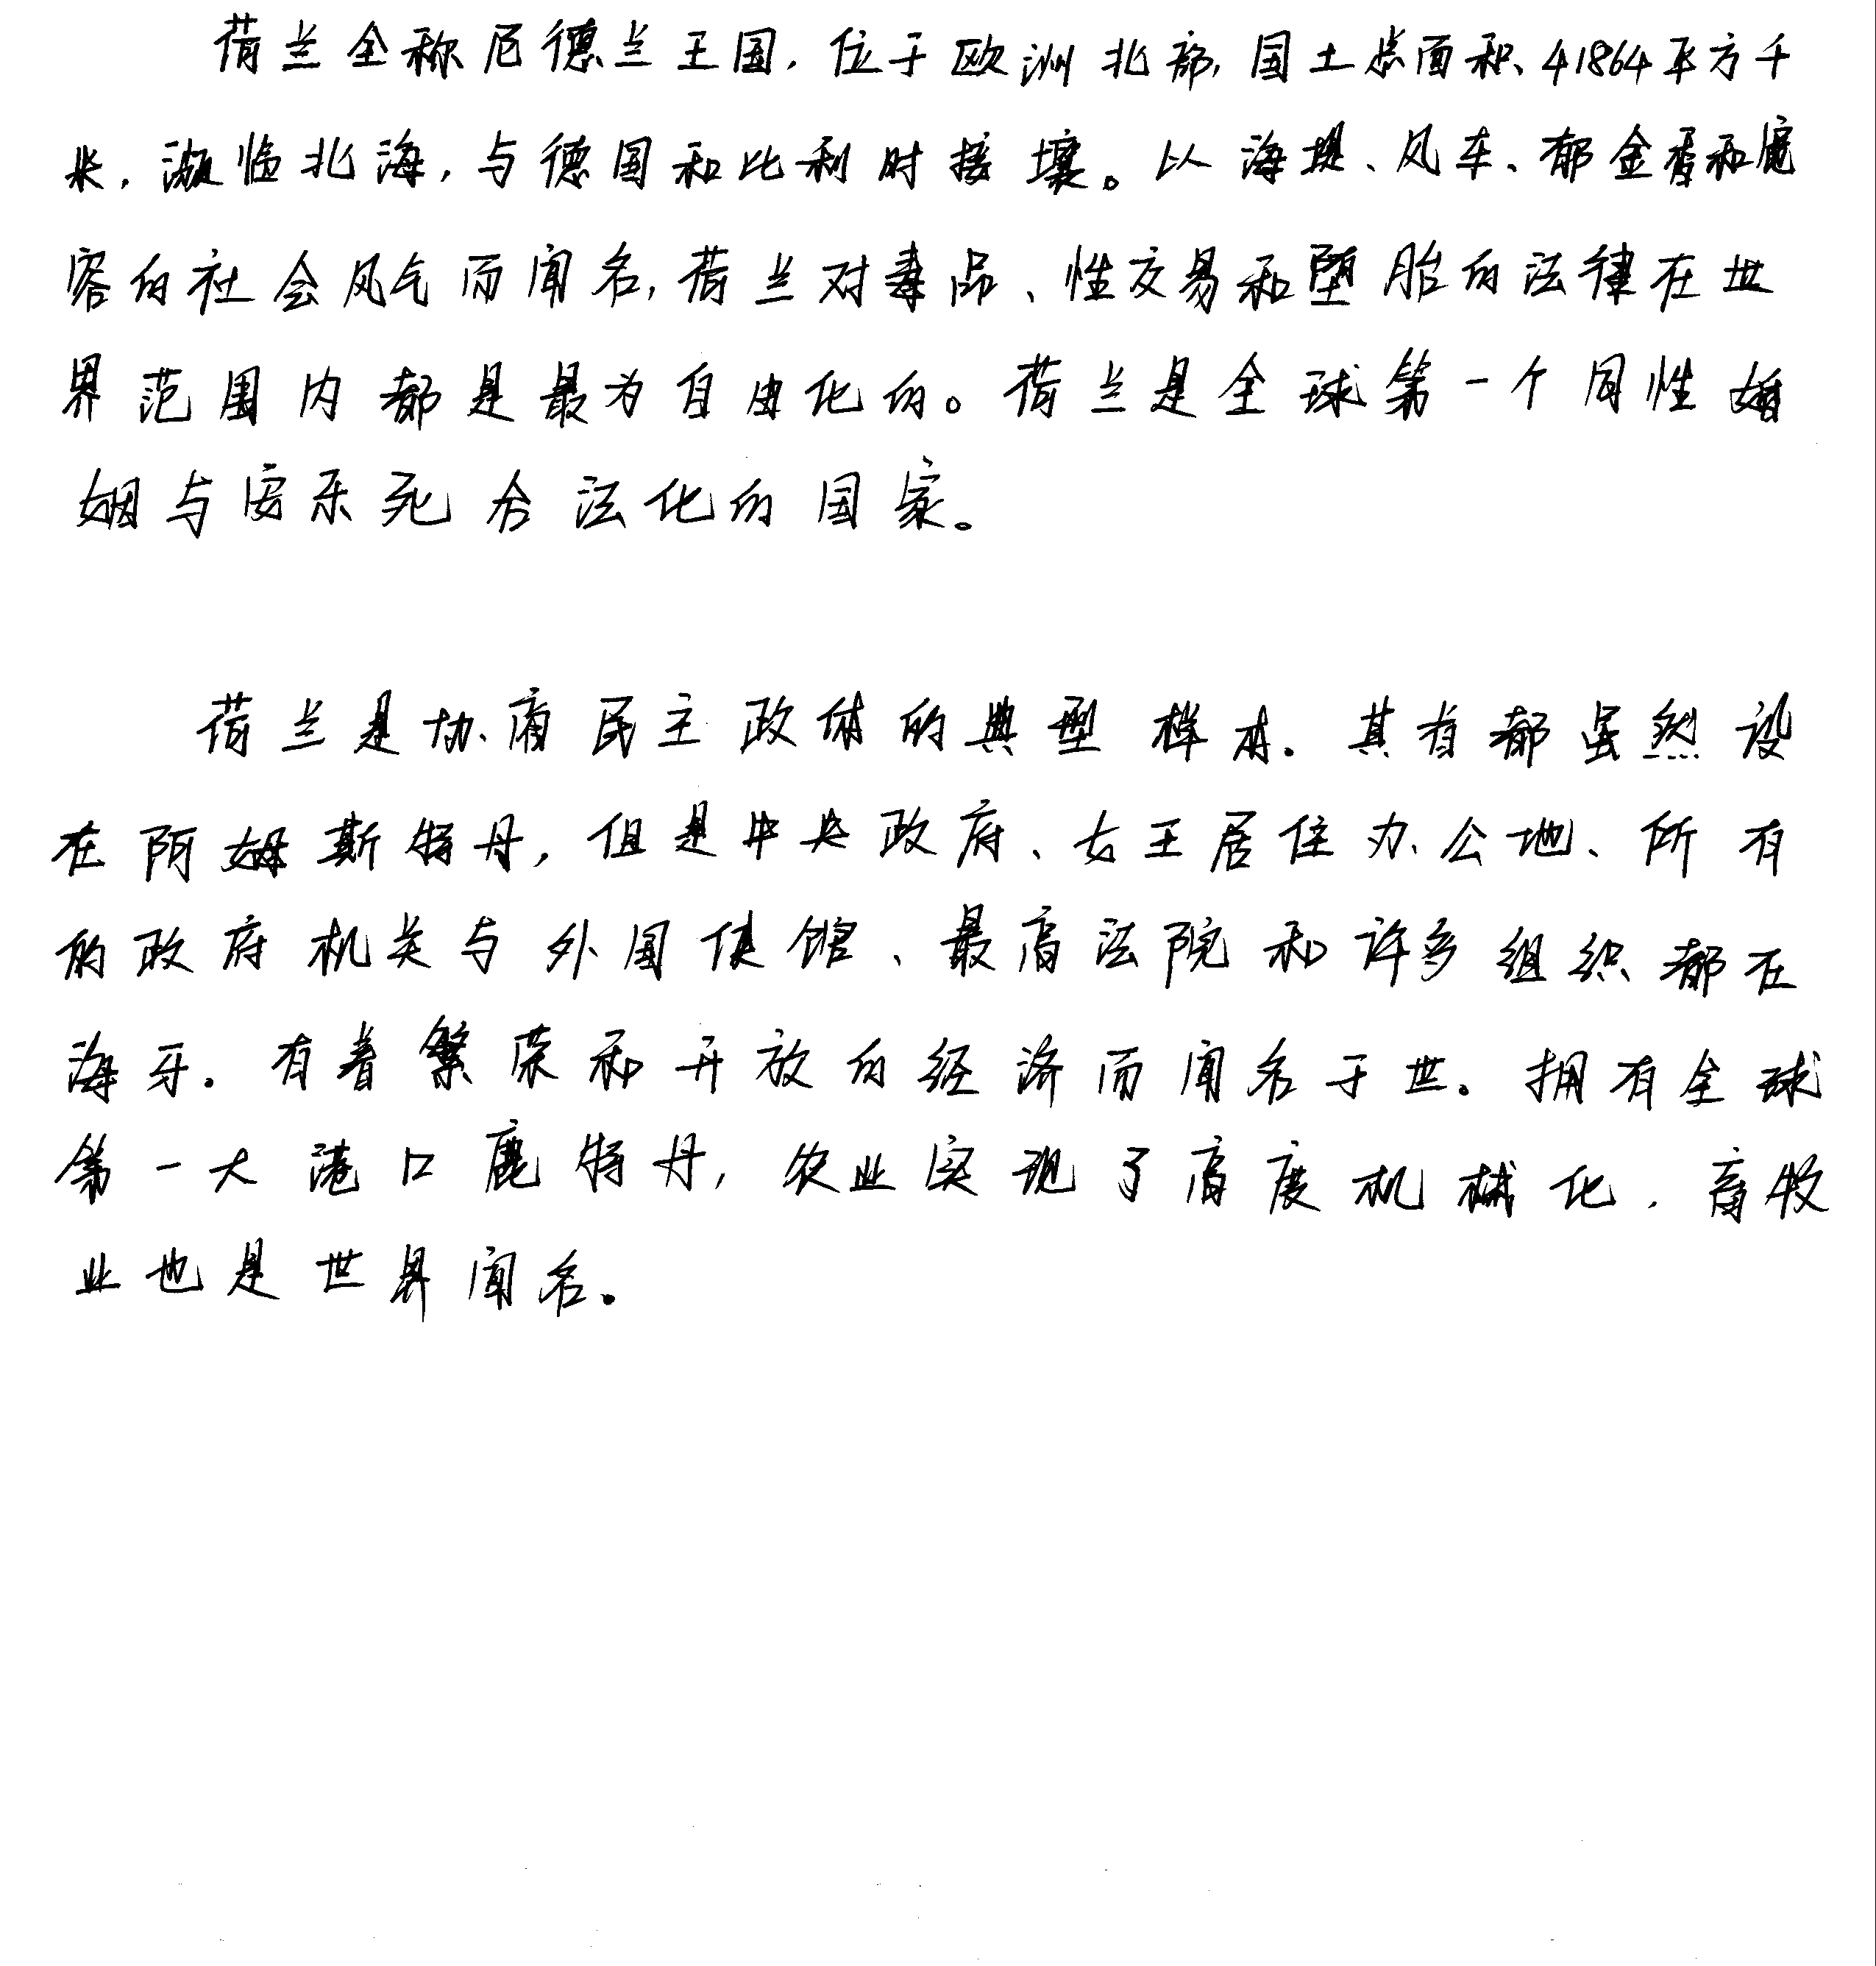 荷兰全称尼德兰王国，位于欧洲北部，国土总面积41864平方千
米，濒临北海，与德国和比利时接壤。以海堤、风车、郁金香和宽
容的社会风气而闻名，荷兰对毒品、性交易和堕胎的法律在世
界范围内都是最为自由化的。荷兰是全球第一个同性婚
姻与安乐死合法化的国家。
荷兰是协商民主政体的典型样本。其首都虽然设
在阿姆斯特丹，但是中央政府、女王居住办公地、所有
的政府机关与外国使馆、最高法院和许多组织都在
海牙。有着繁荣和开放的经济而闻名于世。拥有全球
第一大港口鹿特丹，农业实现了高度机械化，畜牧
业也是世界闻名。